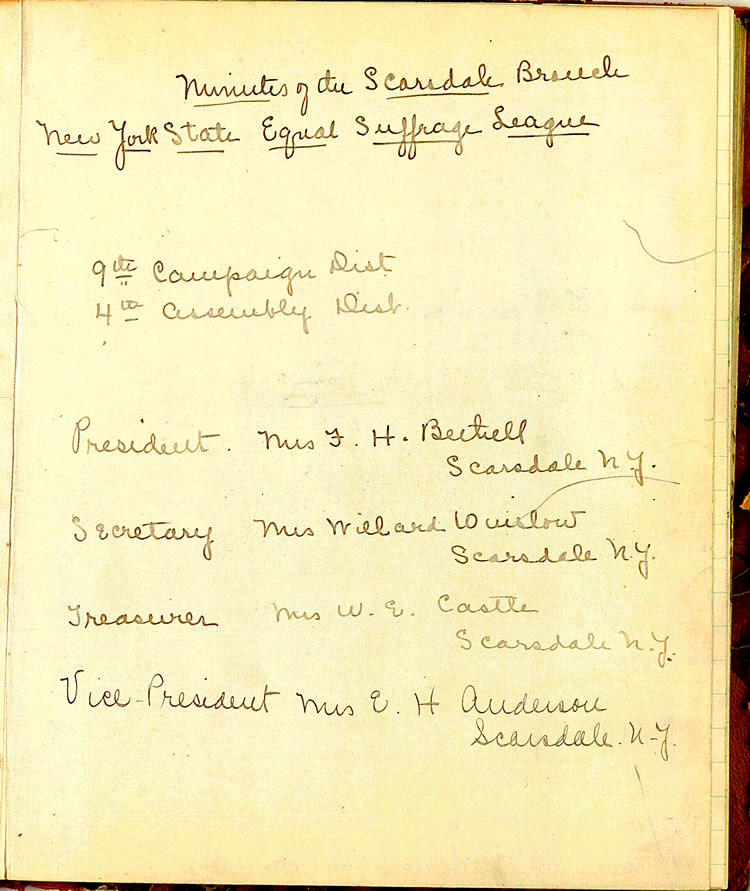 Minutes of the Scarsdale Branch
New York State Equal Suffrage League
9th Campaign Dist
4th Assembly Dist.
President. Mrs F. H. Bethell
Scarsdale N.Y.
Secretary Mrs Willard Winslow
Scarsdale N.Y.
Treasurer Mrs W. E. Castle
Scarsdale N.Y.
Vice-President Mrs E. H Anderson
Scarsdale. N-Y.